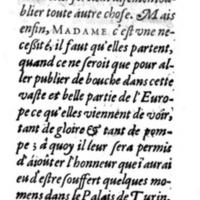 blier toute autre chose. Mais
enfin, MADAME c'est une ne-
cessité, il faut qu'elles partent,
quand ce ne seroit que pour al-
ler publier de bouche dans cette
vaste et belle partie de l'Euro-
pe ce qu'elles viennent de voir,
tant de gloire & tant de pom-
pe ; à quoy il leur sera permis
d'aiouter l'honneur que i'aurai
eu d'estre souffert quelques mo-
mens dans le Palais de Turin,